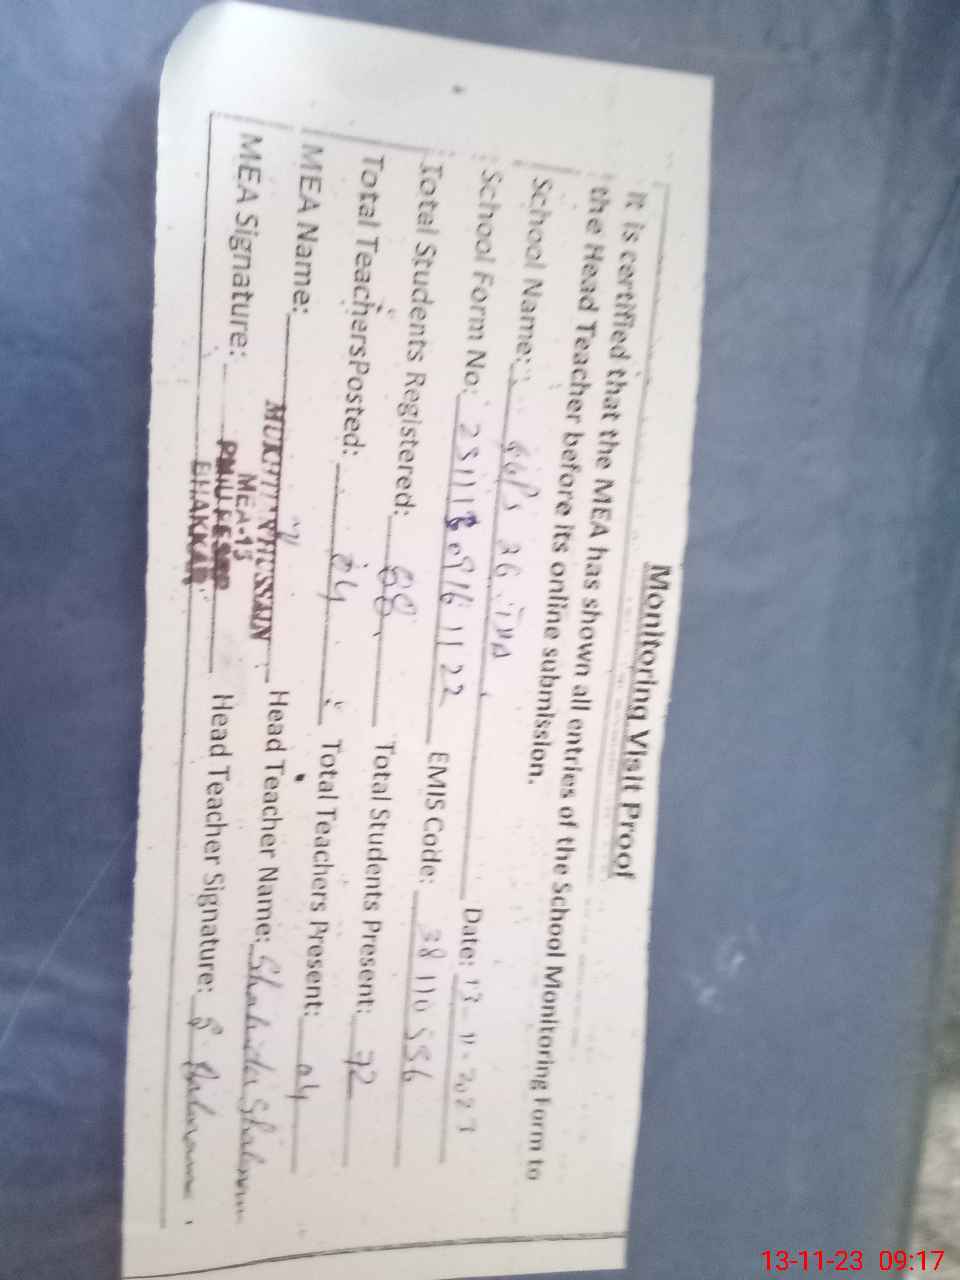 Monitoring Visit Proof
It is certified that the MEA has shown all entries of the School Monitoring Form to
the Head Teacher before its online submission.
School Name: 36 Date: 13-11-2023
School Form No: EMIS Code: 38110556
Total Students Registered: 88 Total Students Present: 72
Total Teachers Posted: 04 Total Teachers Present: 04
MEA Name: HUSSAIN Head Teacher Name: Shahida
MEA-13
MEA Signature: Head Teacher Signature:
BHAKKAR
13-11-23 09:17